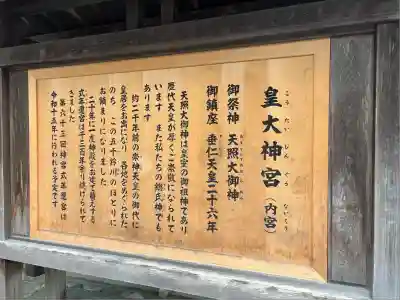 皇大神宮(内宮)
こうたいじんぐう ないくう
御祭神 天照大御神
御鎮座 垂仁天皇二十六年
天照大御神は皇室の御祖神であり
歴代天皇が厚くご崇敬になられて
います また私たちの総氏神でも
あります
約二千年前の崇神天皇の御代に
皇居をお出になり 各地をめぐられた
のち この五十鈴川のほとりに
お鎮まりになりました
二十年に一度神殿をお建て替えする
式年遷宮は千三百年余り続けられて
きました
第六十三回神宮式年遷宮は
令和十五年に行われる予定です